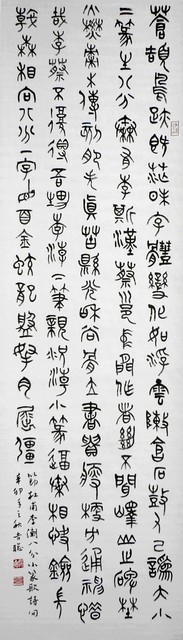 蒼頡鳥跡既茫昧字體變化如浮雲陳倉石鼓久已訛大小
二篆生八分秦有李斯漢蔡邕中間作者絕不聞嶧山之碑野
火焚棗木傳刻肥失真苦縣光和尚骨立書貴瘦硬方通神惜
哉李蔡不復得吾甥李潮下筆親況潮小篆逼秦相快劍長
戟森相向八分一字直百金蛟龍盤拏肉屈強
節杜甫李潮八分小篆歌詩句
辛卯年之秋